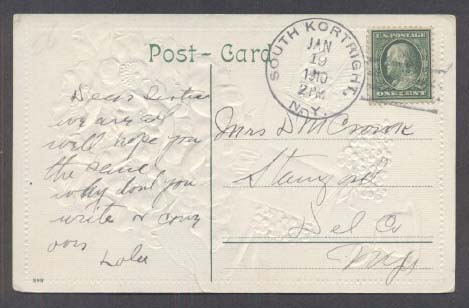 Post-Card
SOUTH KORTRIGHT,
JAN
19
1910
2 PM
N.Y.
U.S. POSTAGE
ONE CENT
Dear
we are all
well hope you
the same
why dont you
write or come
Mrs D M
Del Co